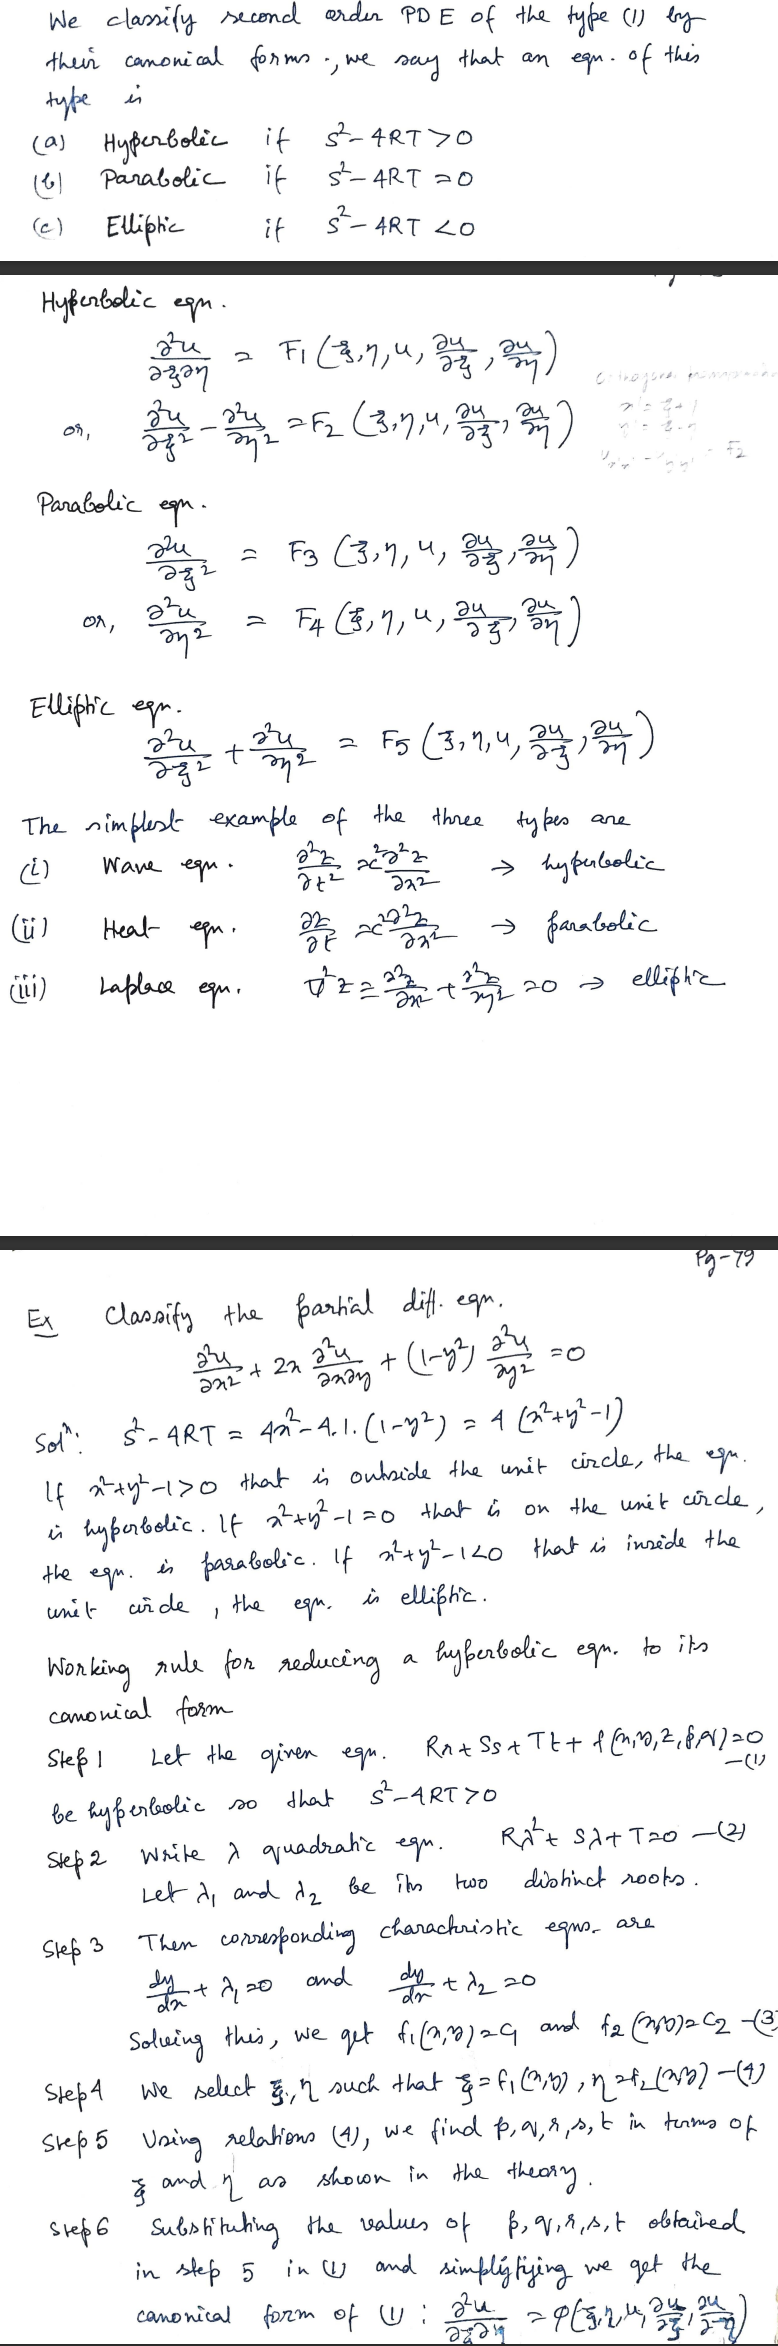 We classify second order PDE of the type (1) by
their canonical forms ., we say that an eqn. of this
type is
(a) Hyperbolic if S² - 4RT > 0
(b) Parabolic if S² - 4RT = 0
(c) Elliptic if S² - 4RT < 0
Hyperbolic eqn.
∂²u/∂ξ∂η = F₁ (ξ, η, u, ∂u/∂ξ, ∂u/∂η)
or, ∂²u/∂ξ² - ∂²u/∂η² = F₂ (ξ, η, u, ∂u/∂ξ, ∂u/∂η)
Parabolic eqn.
∂²u/∂ξ² = F₃ (ξ, η, u, ∂u/∂ξ, ∂u/∂η)
or, ∂²u/∂η² = F₄ (ξ, η, u, ∂u/∂ξ, ∂u/∂η)
Elliptic eqn.
∂²u/∂ξ² + ∂²u/∂η² = F₅ (ξ, η, u, ∂u/∂ξ, ∂u/∂η)
The simplest example of the three types are
(i) Wave eqn. ∂²z/∂t² = c² ∂²z/∂x² → hyperbolic
(ii) Heat eqn. ∂z/∂t = c² ∂²z/∂x² → parabolic
(iii) Laplace eqn. ∇²z = ∂²z/∂x² + ∂²z/∂y² = 0 → elliptic
Pg-79
Ex Classify the partial diff. eqn.
∂²u/∂x² + 2x ∂²u/∂x∂y + (1-y²) ∂²u/∂y² = 0
Solⁿ: S² - 4RT = 4x² - 4.1.(1-y²) = 4 (x²+y²-1)
If x²+y²-1>0 that is outside the unit circle, the eqn.
is hyperbolic. If x²+y²-1=0 that is on the unit circle,
the eqn. is parabolic. If x²+y²-1<0 that is inside the
unit circle, the eqn. is elliptic.
Working rule for reducing a hyperbolic eqn. to its
canonical form
Step 1 Let the given eqn. Rr + Ss + Tt + f(x,y,z,p,q)=0 —(1)
be hyperbolic so that S²-4RT>0
Step 2 Write λ quadratic eqn. Rλ² + Sλ + T=0 —(2)
Let λ₁ and λ₂ be its two distinct roots.
Step 3 Then corresponding charachristic eqns. are
dy/dx + λ₁ = 0 and dy/dx + λ₂ = 0
Solving this, we get f₁(x,y)=c₁ and f₂(x,y)=c₂ —(3)
Step 4 We select ξ, η such that ξ = f₁(x,y), η = f₂(x,y) —(4)
Step 5 Using relations (4), we find p,q,r,s,t in terms of
ξ and η as shown in the theory.
Step 6 Substituting the values of p,q,r,s,t obtained
in step 5 in (1) and simplifying we get the
canonical form of (1) : ∂²u/∂ξ∂η = φ(ξ, η, u, ∂u/∂ξ, ∂u/∂η)